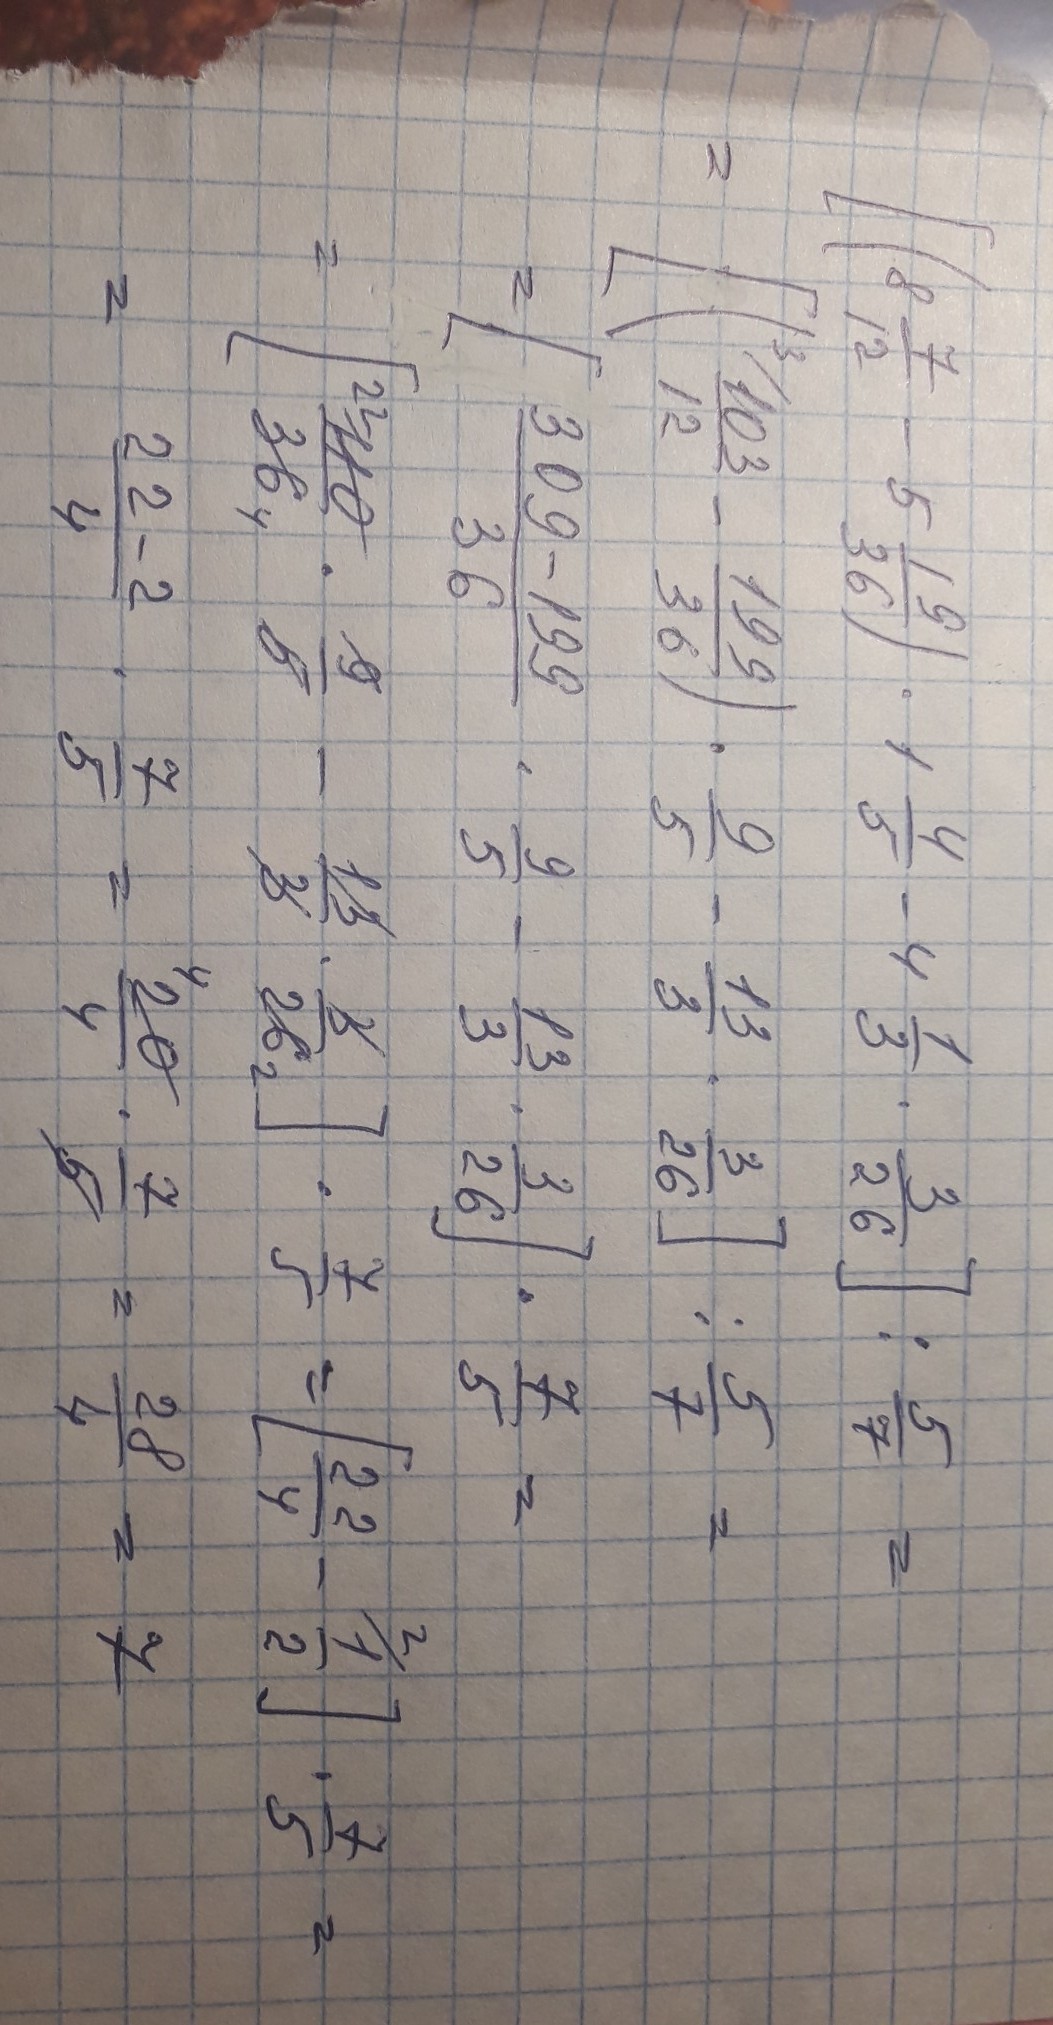 [(8 7/12 - 5 19/36) · 1 4/5 - 4 1/3 · 3/26] : 5/7 =
= [(103/12 ^3/ - 199/36) · 9/5 - 13/3 · 3/26] : 5/7 =
= [(309-199)/36 · 9/5 - 13/3 · 3/26] · 7/5 =
= [22 110/36 4 · 9/5 - 13/3 · 3/26 2] · 7/5 = [22/4 - 1/2 ^2/] · 7/5 =
= (22-2)/4 · 7/5 = 4 20/4 · 7/5 = 28/4 = 7